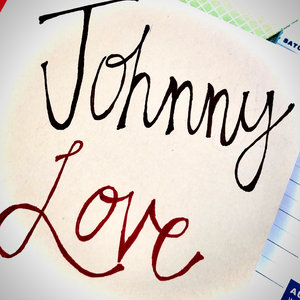 Johnny
Love